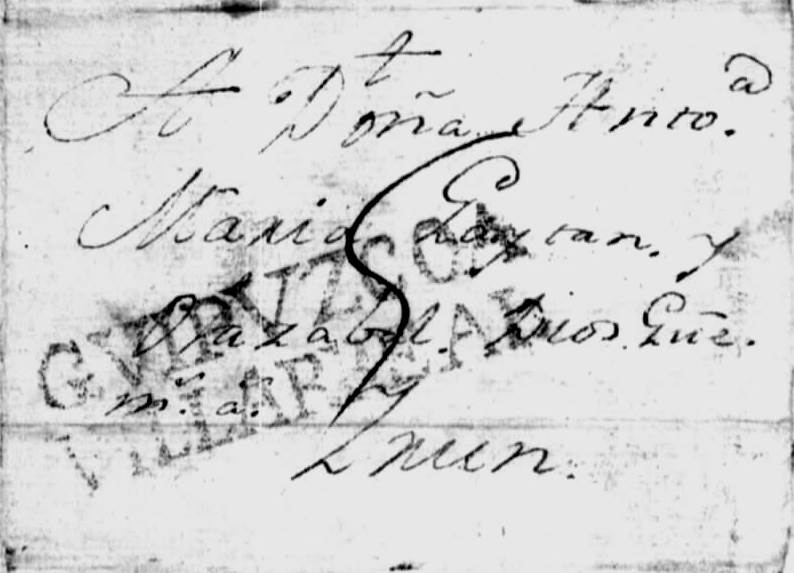 A Doña Anto.ª
Maria Gaytan. y
Olazabal. Dios Gũe.
m.s a.s
Irun.
5
GVIPVZCOA
VILLAREAL